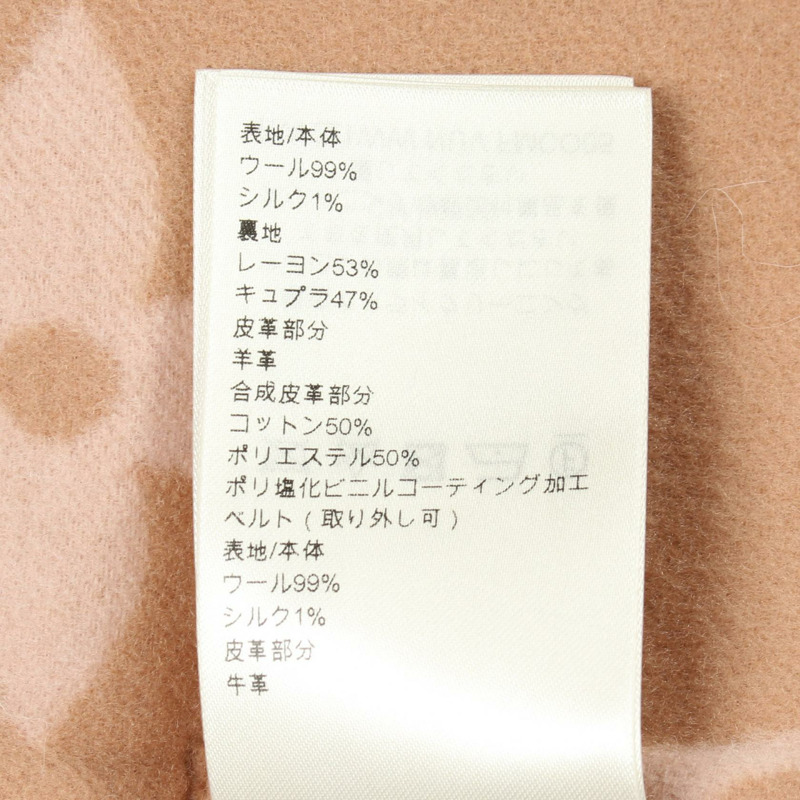 表地/本体
ウール99%
シルク1%
裏地
レーヨン53%
キュプラ47%
皮革部分
羊革
合成皮革部分
コットン50%
ポリエステル50%
ポリ塩化ビニルコーティング加工
ベルト(取り外し可)
表地/本体
ウール99%
シルク1%
皮革部分
牛革